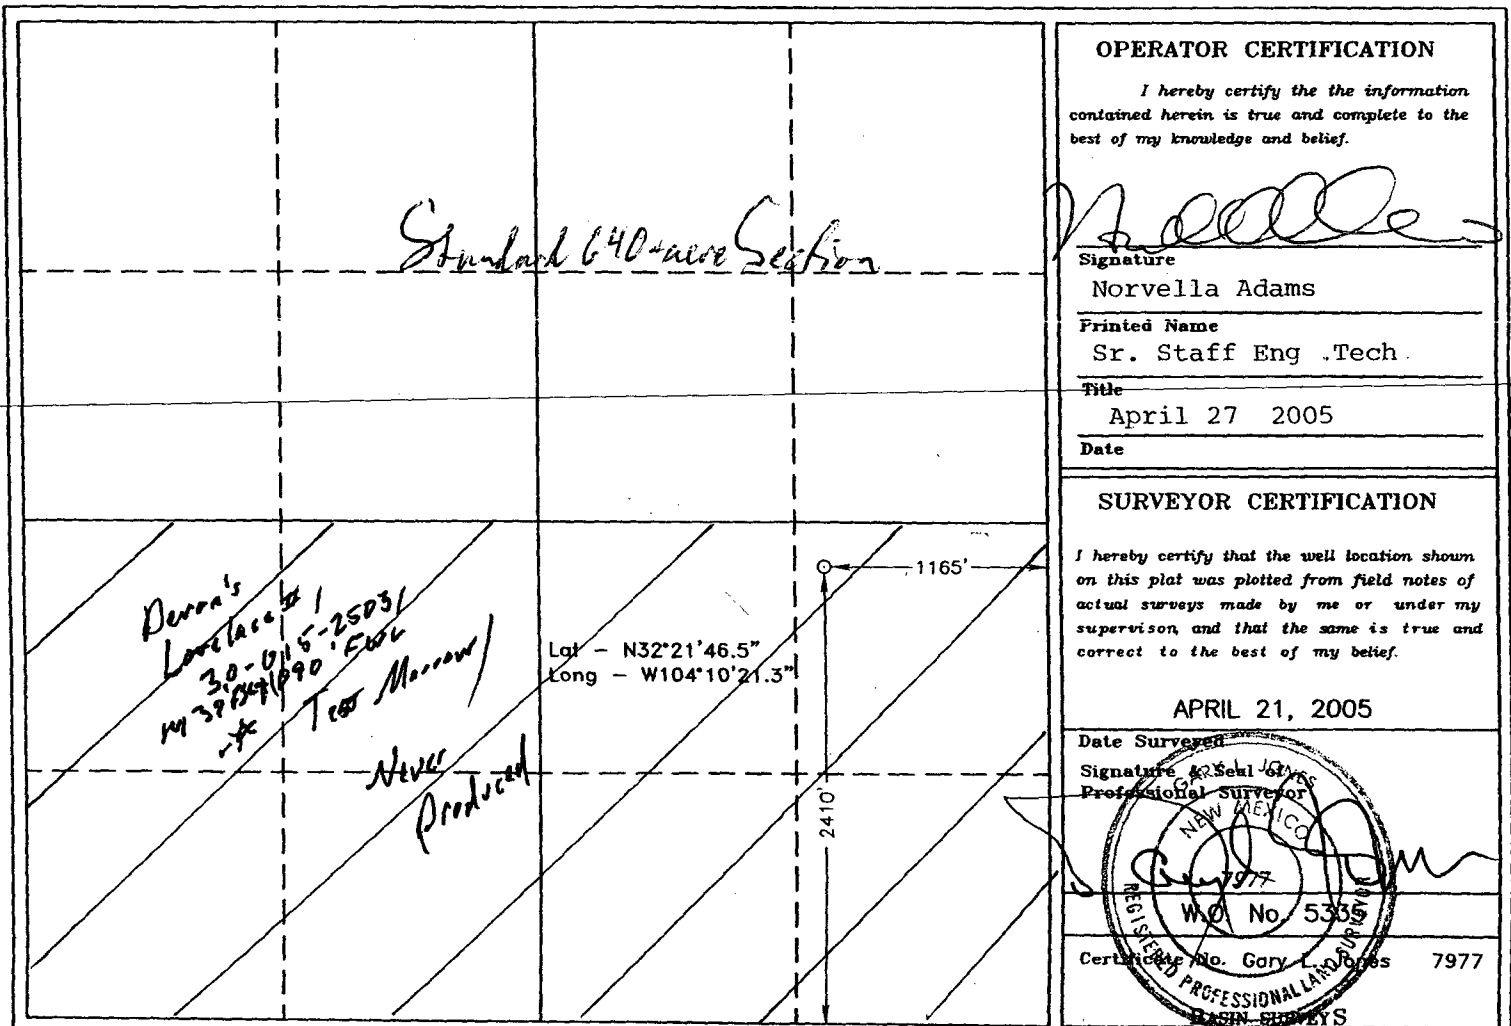 Standard 640-acre Section
Devon's
Lovelace #1
30-015-25031
' FWL
Test Morrow
Never
Produced
Lat - N32°21'46.5"
Long - W104°10'21.3"
1165'
2410'
OPERATOR CERTIFICATION
I hereby certify the the information
contained herein is true and complete to the
best of my knowledge and belief.
Signature
Norvella Adams
Printed Name
Sr. Staff Eng .Tech.
Title
April 27 2005
Date
SURVEYOR CERTIFICATION
I hereby certify that the well location shown
on this plat was plotted from field notes of
actual surveys made by me or under my
supervison, and that the same is true and
correct to the best of my belief.
APRIL 21, 2005
Date Surveyed
Signature & Seal of
Professional Surveyor
GARY L. JONES
NEW MEXICO
7977
REGISTERED PROFESSIONAL LAND SURVEYOR
W.O. No. 5335
Certificate No. Gary L. Jones 7977
BASIN SURVEYS